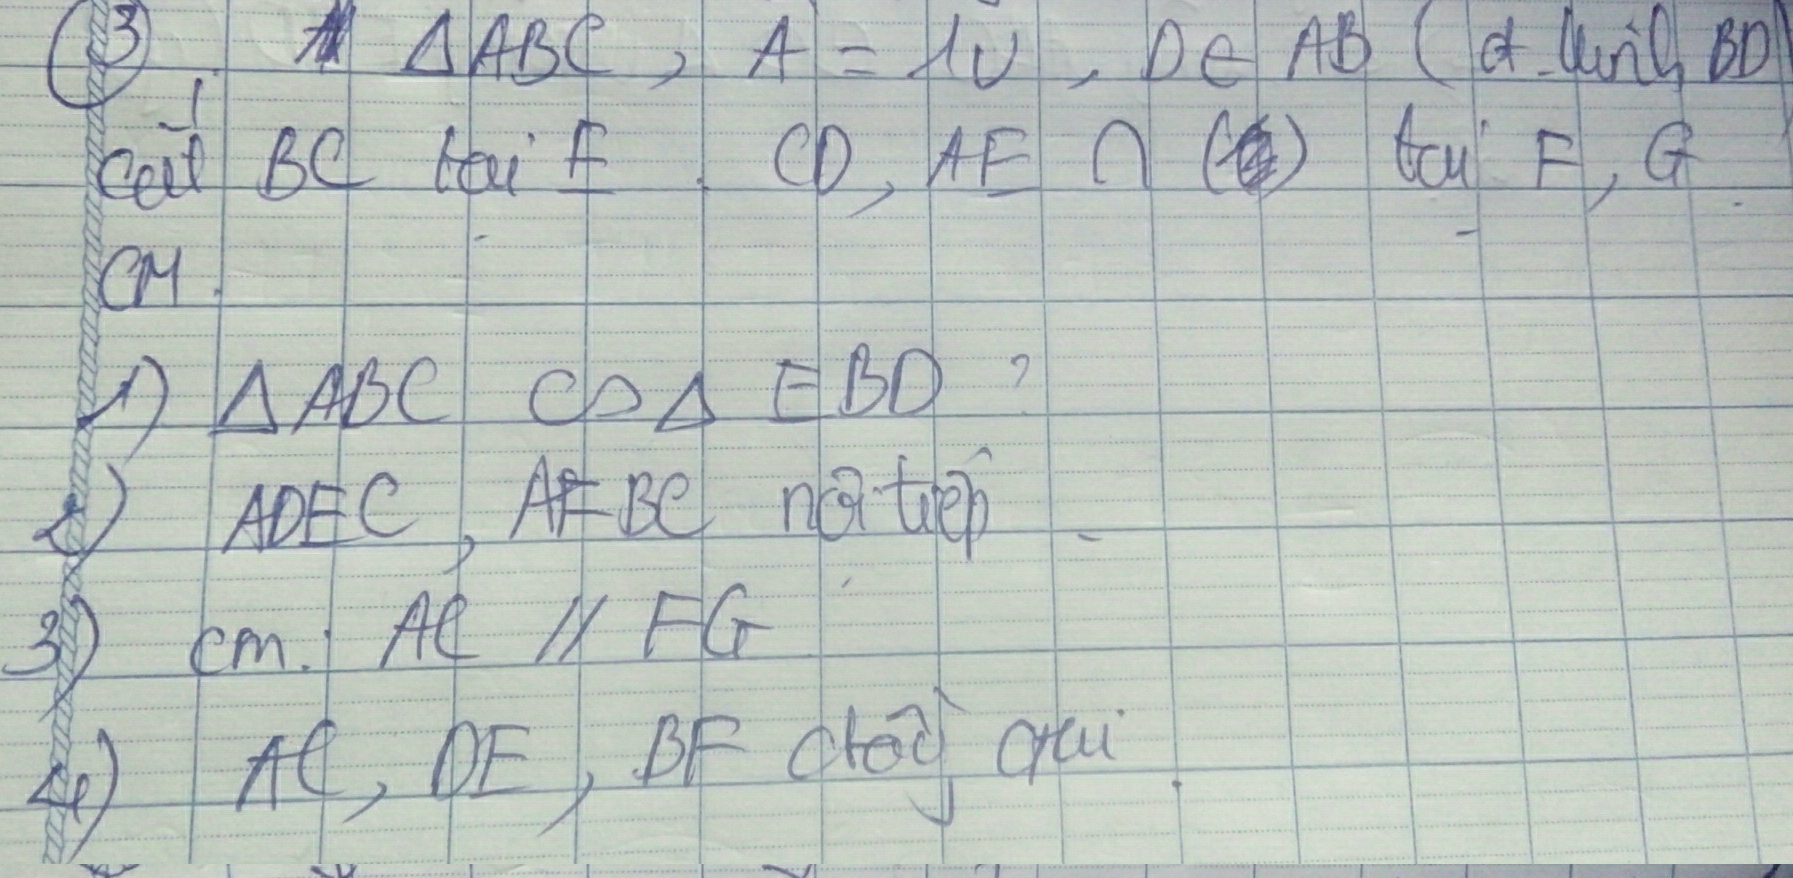 3. ΔABC, A = 1v, D∈ AB (đ. kính BD)
cắt BC tại E. CD, AE ∩ ( ) tại F, G.
CM.
1) ΔABC ∽ Δ EBD ?
2) ADEC, AFBC nội tiếp
3) cm: AC // FG
4) AC, DE, BF đồng qui.